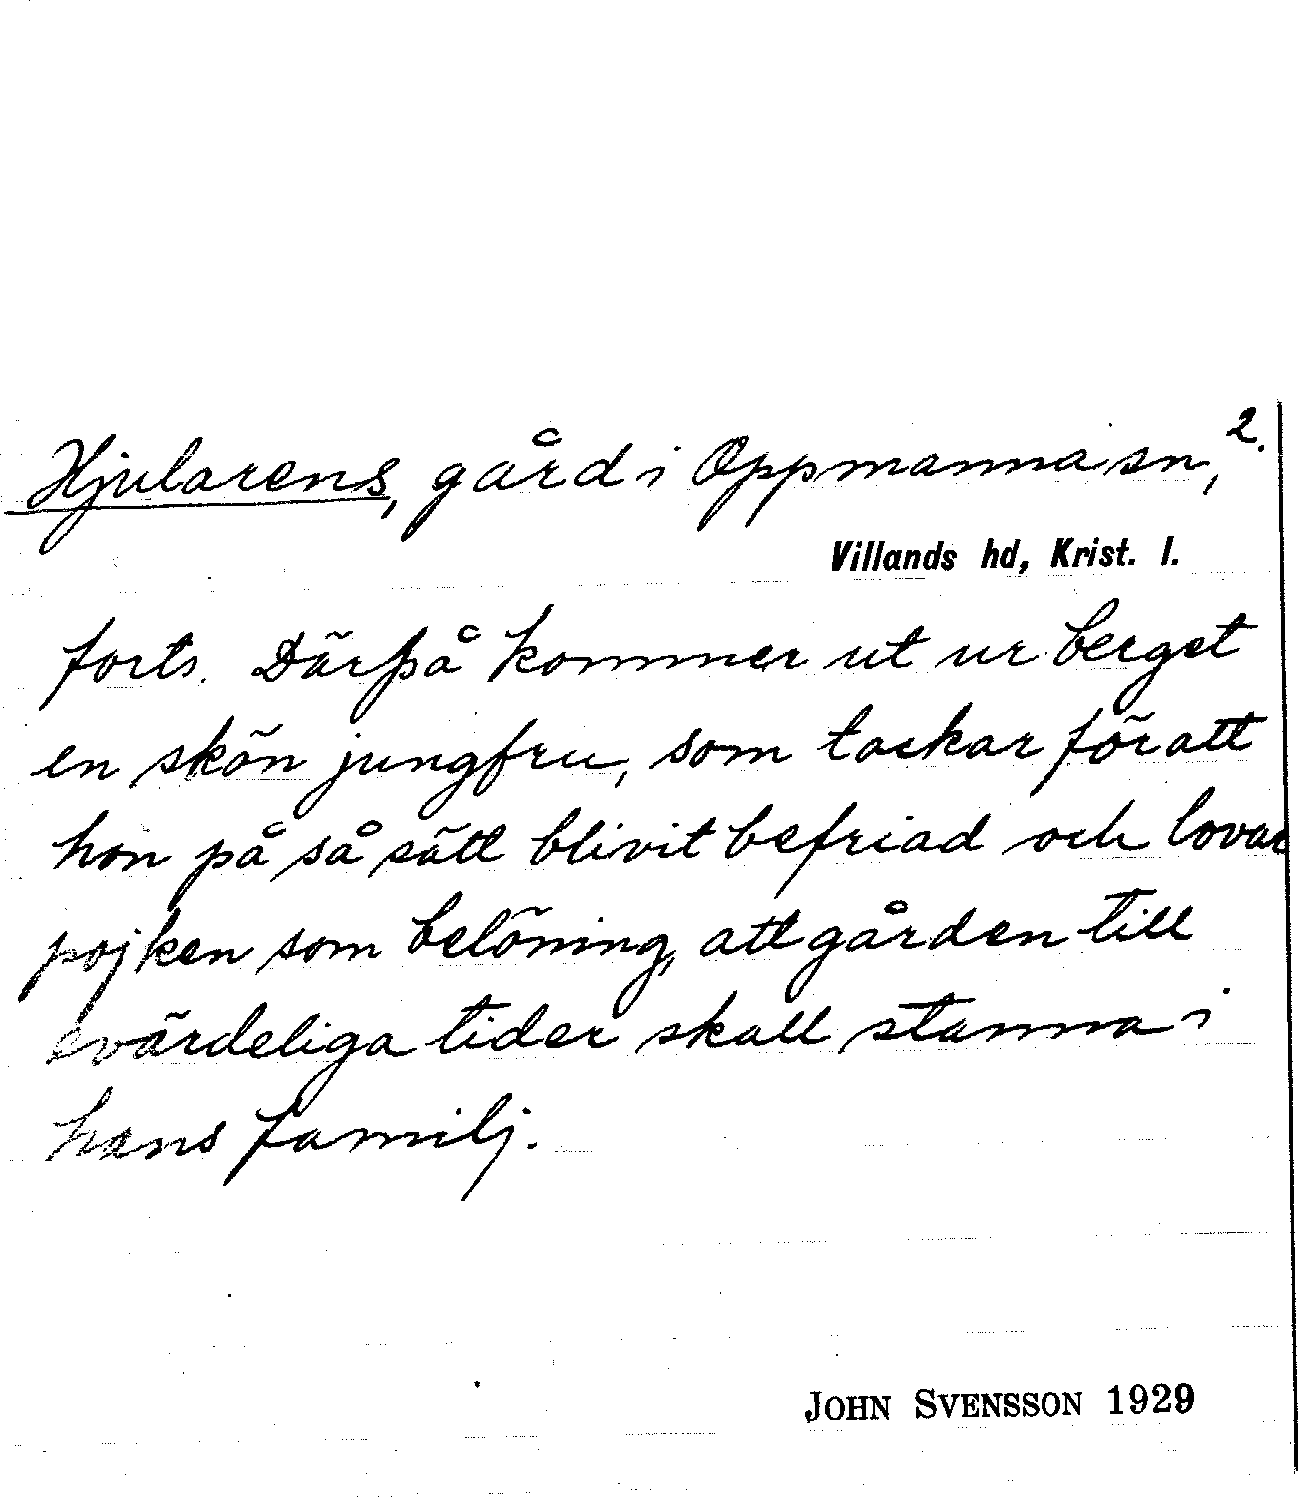 Hjularens, gård i Oppmanna sn, 2.
Villands hd, Krist. l.
forts. Därpå kommer ut ur berget
en skön jungfru, som tackar för att
hon på så sätt blivit befriad och lovar
pojken som belöning, att gården till
evärdeliga tider skall stanna i
hans familj.
JOHN SVENSSON 1929